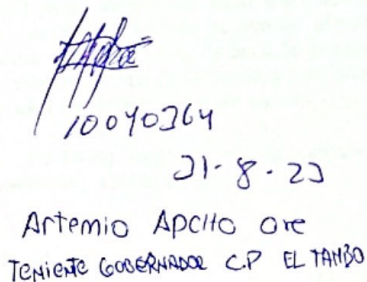 10040364
21-8-23
Artemio Apcho Ore
TENIENTE GOBERNADOR C.P EL TAMBO